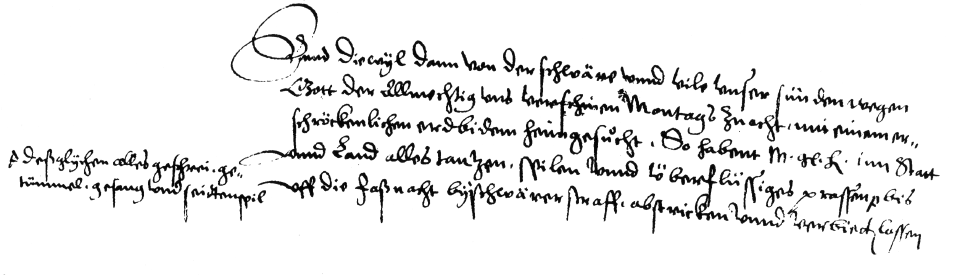 Vnnd diewyl dann von der schwäre vnnd vile vnser sünden wegen
Gott der Allmechtig vns verschinen Montags znacht, mit einem er-
schröckenlichen erdbidem heimgesůcht. So habent M. gl. H. inn Statt
vnnd Land alles tantzen, spilen vnnd überflüssiges prassen bis
vff die Faßnacht by schwärer straff, abstricken vnnd verbieten lassen
deßglychen alles geschrei, ge-
tümmel, gesang vnnd seidtenspil